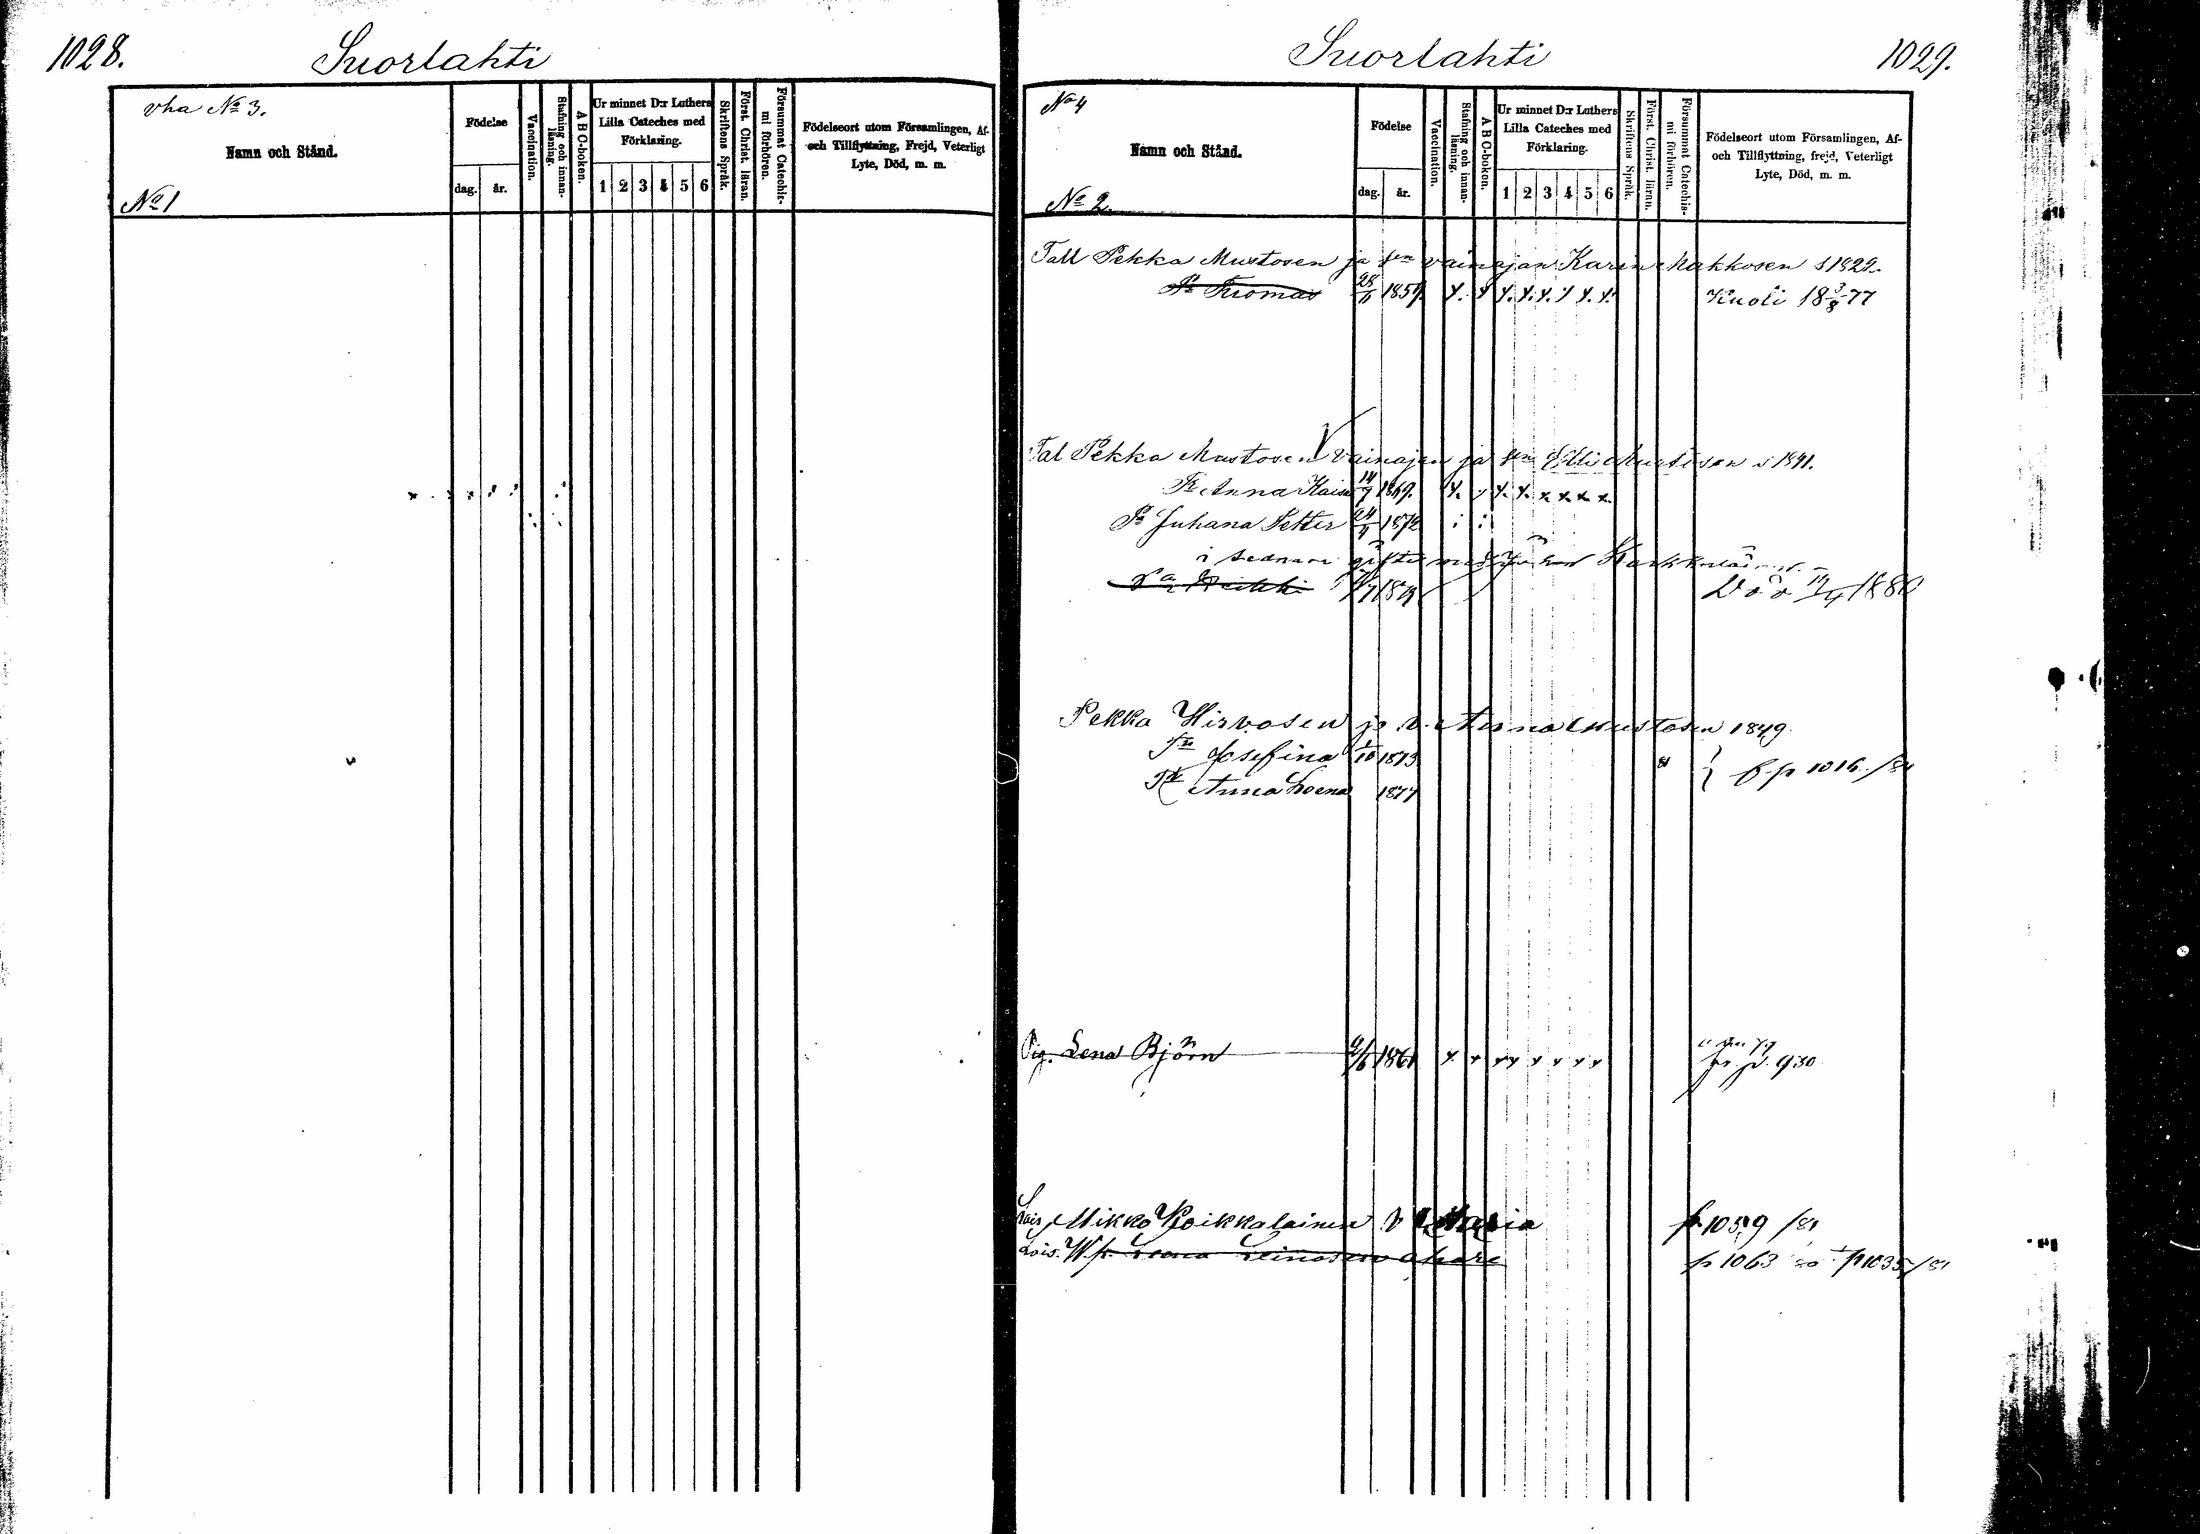 1028.
Suorlahti
vha No 3.
Namn och Stånd.
No 1
Födelse
dag.
år.
Vaccination.
Stafning och innan-läsning.
A B C-boken.
Ur minnet D:r Luthers
Lilla Cateches med
Förklaring.
1 2 3 4 5 6
Skriftens Språk.
Först. Christ. läran.
Försummat Catechis-mi förhören.
Födelseort utom Församlingen, Af-
och Tillflyttning, Frejd, Veterligt
Lyte, Död, m. m.
Suorlahti
1029.
No 4
Namn och Stånd.
No 2.
Födelse
dag.
år.
Vaccination.
Stafning och innan-läsning.
A B C-boken.
Ur minnet D:r Luthers
Lilla Cateches med
Förklaring.
1 2 3 4 5 6
Skriftens Språk.
Först. Christ. läran.
Försummat Catechis-mi förhören.
Födelseort utom Församlingen, Af-
och Tillflyttning, frejd, Veterligt
Lyte, Död, m. m.
Tall Pekka Mustosen ja sen vainajan Karin Makkosen s 1829.
Pa Tuomas 1859 Kuoli 18 3/8 77
Tal Pekka Mustosen Vainajan ja sen Elli Mustosen s 1841.
Tr Anna Kaisa 14/7 1869.
Pa Juhana Petter 1872
i sednare gifte med
Pa Heikki Död 1880
Pekka Hirvosen ja v. Anna Mustosen 1849
Tr Josefina 1/10 1873
Tr Anna Loena 1877 f. p 1016 /81
Pig. Lena Björn 1861 p. 930
Lois Mikko Koikkalainen v Maria p. 1059 /81
Lois. W. p 1063 p 1035/81